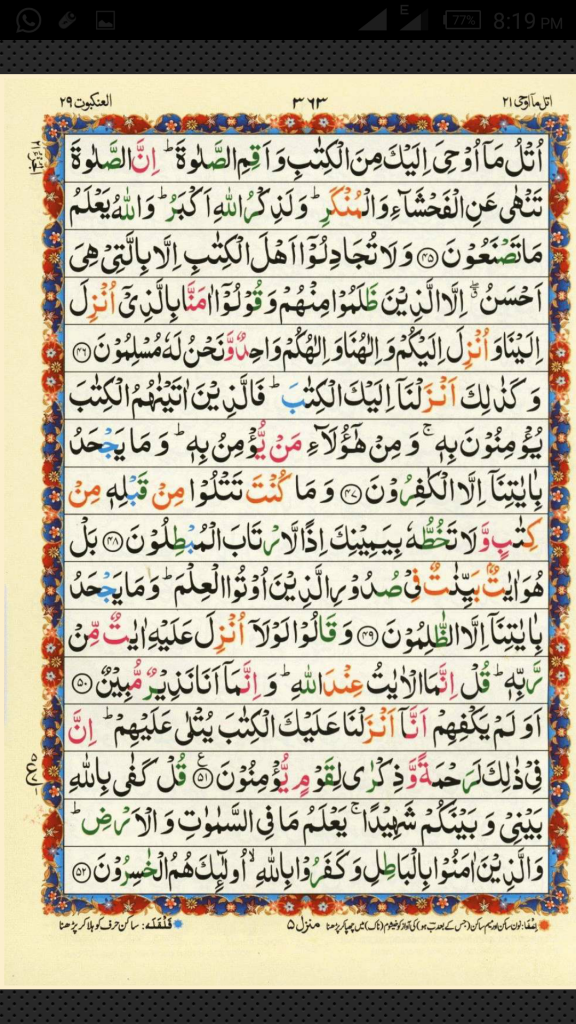 E 77% 8:19 PM
اتل ماۤ اوحی ۲۱ ۳۶۳ العنكبوت ۲۹
اُتْلُ مَاۤ اُوْحِیَ اِلَیْكَ مِنَ الْكِتٰبِ وَ اَقِمِ الصَّلٰوةَ ؕ اِنَّ الصَّلٰوةَ
تَنْهٰی عَنِ الْفَحْشَآءِ وَ الْمُنْكَرِ ؕ وَ لَذِكْرُ اللّٰهِ اَكْبَرُ ؕ وَ اللّٰهُ یَعْلَمُ
مَا تَصْنَعُوْنَ ﴿۴۵﴾ وَ لَا تُجَادِلُوْۤا اَهْلَ الْكِتٰبِ اِلَّا بِالَّتِیْ هِیَ
اَحْسَنُ ۖۗ اِلَّا الَّذِیْنَ ظَلَمُوْا مِنْهُمْ وَ قُوْلُوْۤا اٰمَنَّا بِالَّذِیْۤ اُنْزِلَ
اِلَیْنَا وَ اُنْزِلَ اِلَیْكُمْ وَ اِلٰهُنَا وَ اِلٰهُكُمْ وَاحِدٌ وَّ نَحْنُ لَهٗ مُسْلِمُوْنَ ﴿۴۶﴾
وَ كَذٰلِكَ اَنْزَلْنَاۤ اِلَیْكَ الْكِتٰبَ ؕ فَالَّذِیْنَ اٰتَیْنٰهُمُ الْكِتٰبَ
یُؤْمِنُوْنَ بِهٖ ۚ وَ مِنْ هٰۤؤُلَآءِ مَنْ یُّؤْمِنُ بِهٖ ؕ وَ مَا یَجْحَدُ
بِاٰیٰتِنَاۤ اِلَّا الْكٰفِرُوْنَ ﴿۴۷﴾ وَ مَا كُنْتَ تَتْلُوْا مِنْ قَبْلِهٖ مِنْ
كِتٰبٍ وَّ لَا تَخُطُّهٗ بِیَمِیْنِكَ اِذًا لَّارْتَابَ الْمُبْطِلُوْنَ ﴿۴۸﴾ بَلْ
هُوَ اٰیٰتٌۢ بَیِّنٰتٌ فِیْ صُدُوْرِ الَّذِیْنَ اُوْتُوا الْعِلْمَ ؕ وَ مَا یَجْحَدُ
بِاٰیٰتِنَاۤ اِلَّا الظّٰلِمُوْنَ ﴿۴۹﴾ وَ قَالُوْا لَوْلَاۤ اُنْزِلَ عَلَیْهِ اٰیٰتٌ مِّنْ
رَّبِّهٖ ؕ قُلْ اِنَّمَا الْاٰیٰتُ عِنْدَ اللّٰهِ ؕ وَ اِنَّمَاۤ اَنَا نَذِیْرٌ مُّبِیْنٌ ﴿۵۰﴾
اَوَ لَمْ یَكْفِهِمْ اَنَّاۤ اَنْزَلْنَا عَلَیْكَ الْكِتٰبَ یُتْلٰی عَلَیْهِمْ ؕ اِنَّ
فِیْ ذٰلِكَ لَرَحْمَةً وَّ ذِكْرٰی لِقَوْمٍ یُّؤْمِنُوْنَ ﴿۵۱﴾ ع قُلْ كَفٰی بِاللّٰهِ
بَیْنِیْ وَ بَیْنَكُمْ شَهِیْدًا ۚ یَعْلَمُ مَا فِی السَّمٰوٰتِ وَ الْاَرْضِ ؕ
وَ الَّذِیْنَ اٰمَنُوْا بِالْبَاطِلِ وَ كَفَرُوْا بِاللّٰهِ ۙ اُولٰٓىِٕكَ هُمُ الْخٰسِرُوْنَ ﴿۵۲﴾
اِخْفَا: نون ساکن اور میم ساکن (جس کے بعد ب ہو) کی آواز کو خیشوم (ناک) میں چھپا کر پڑھنا منزل ۵ قَلْقَلَہ: ساکن حرف کو ہلا کر پڑھنا